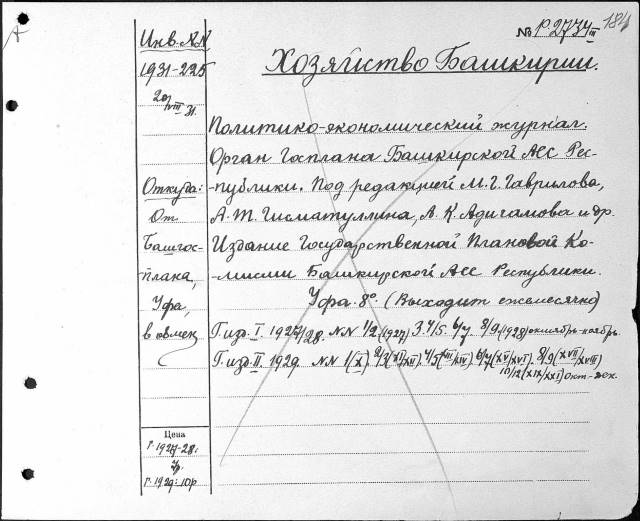 184
№ P 2734 III
Хозяйство Башкирии.
Инв. №№
1931-225
20/VIII 31.
Откуда:
От
Башгос-
плана,
Уфа,
в обмен
Политико-экономический журнал.
Орган Госплана Башкирской Асс Рес-
-публики. Под редакцией М. Г. Гаврилова,
А. Т. Гисматуллина, А. К. Адигамова и др.
Издание Государственной Плановой Ко-
-миссии Башкирской Асс Республики.
Уфа. 8°. (Выходит ежемесячно)
Г. изд. I. 1927/28. NN 1/2 (1927) 3. 4/5. 6/7. 8/9. (1928) октябрь-ноябрь.
Г. изд. II. 1929. NN 1(X) 2/3(XI/XII) 4/5(XIII/XIV) 6/7(XV/XVI). 8/9(XVII/XVIII)
10/12(XIX/XXI) окт-дек.
Цена
Г. 1927-28:
Г. 1929: 10р